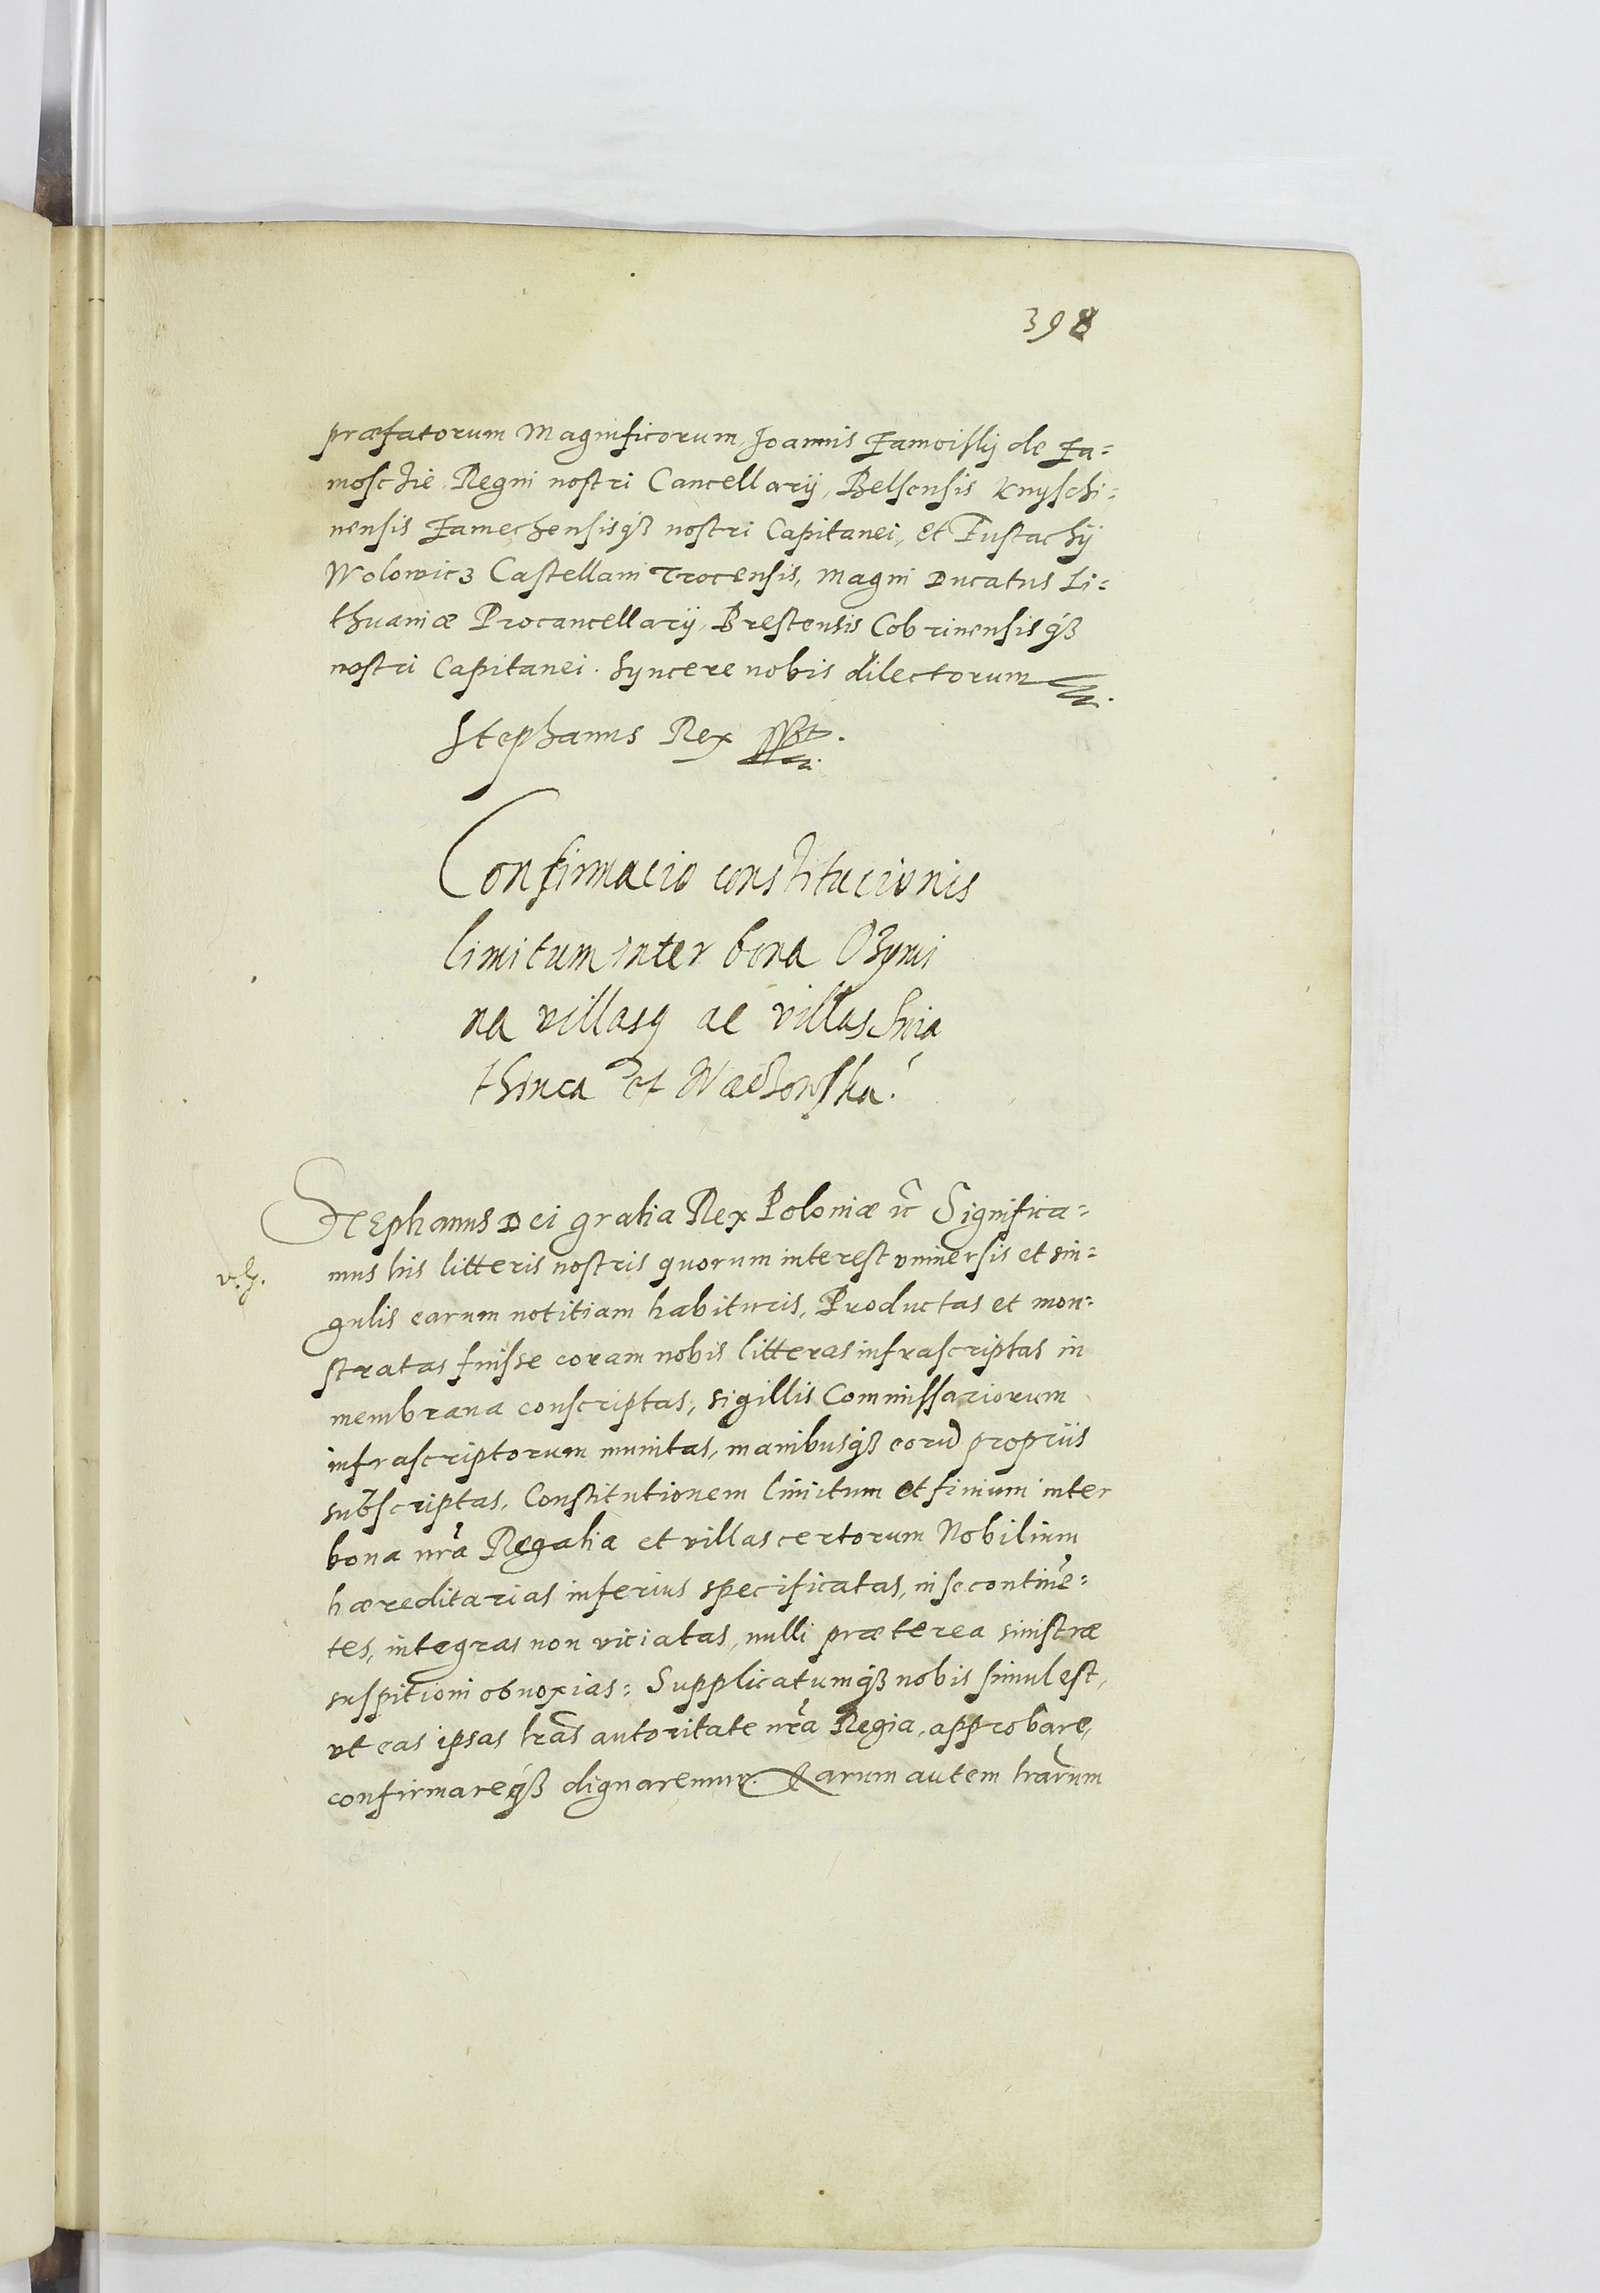 398
præfatorum Magnificorum, Joannis Zamoiskij de Za=
moschie Regni nostri Cancellarij, Belsensis Knyschi=
nensis Zamechensisqȝ nostri Capitanei, et Eustachij
Wolowicz Castellani Trocensis, Magni Ducatus Li=
thuaniæ Procancellarij, Brestensis Cobrinensisqȝ
nostri Capitanei. Syncere nobis dilectorum
Stephanus Rex sspt.
Confirmacio constitucionis
limitum inter bona Ozymi
na villasq ac villas Swia
thinca et
Stephanus Dei gratia Rex Poloniæ ꝛc̃ Significa=
v.g. mus his litteris nostris quorum interest vniuersis et sin=
gulis earum notitiam habituris, Productas et mon=
stratas fuisse coram nobis litteras infrascriptas in
membrana conscriptas, sigillis Commissariorum
infrascriptorum munitas, manibusqȝ eorũ propriis
subscriptas, Constitutionem limitum et finium inter
bona nr̃a Regalia et villas certorum Nobilium
hæreditarias inferius specificatas, in se continẽ=
tes, integras non viciatas, nulli præterea sinistræ
suspitioni obnoxias: Supplicatumqȝ nobis simul est,
vt eas ipsas lr̃as autoritate nr̃a Regia, approbare,
confirmareqȝ dignaremur. Quarum autem lr̃arum